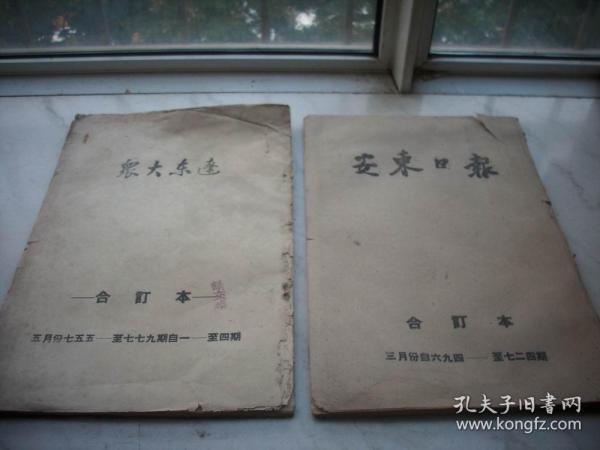 遼东大眾
合訂本
五月份七五五——至七七九期自一——至四期
安東日報
合訂本
三月份自六九四——至七二四期
孔夫子旧書网
www.kongfz.com